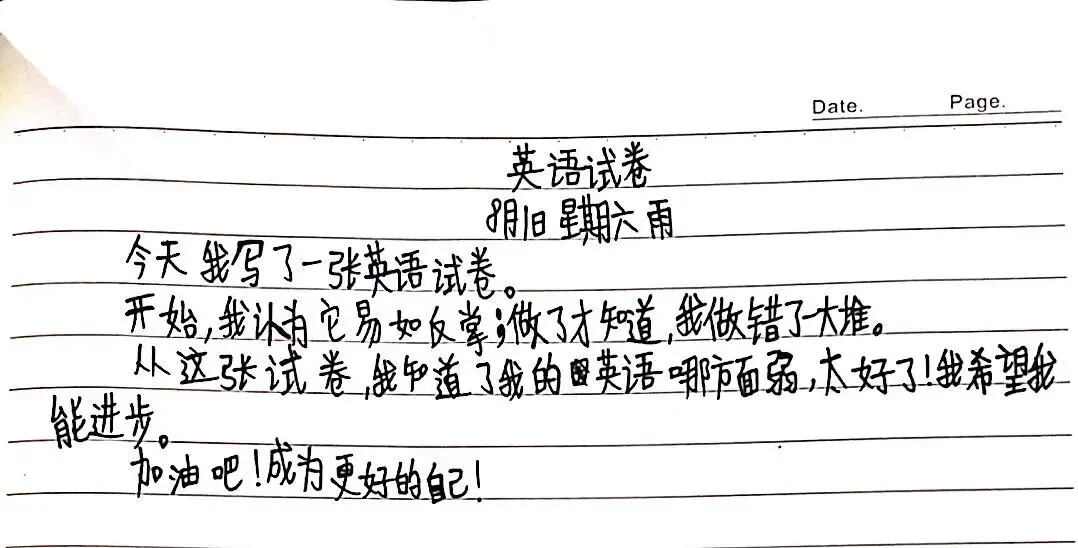 Date. Page.
英语试卷
8月1日 星期六 雨
今天我写了一张英语试卷。
开始,我认为它易如反掌;做了才知道,我做错了一大堆。
从这张试卷,我知道了我的英语哪方面弱,太好了!我希望我
能进步。
加油吧!成为更好的自己!